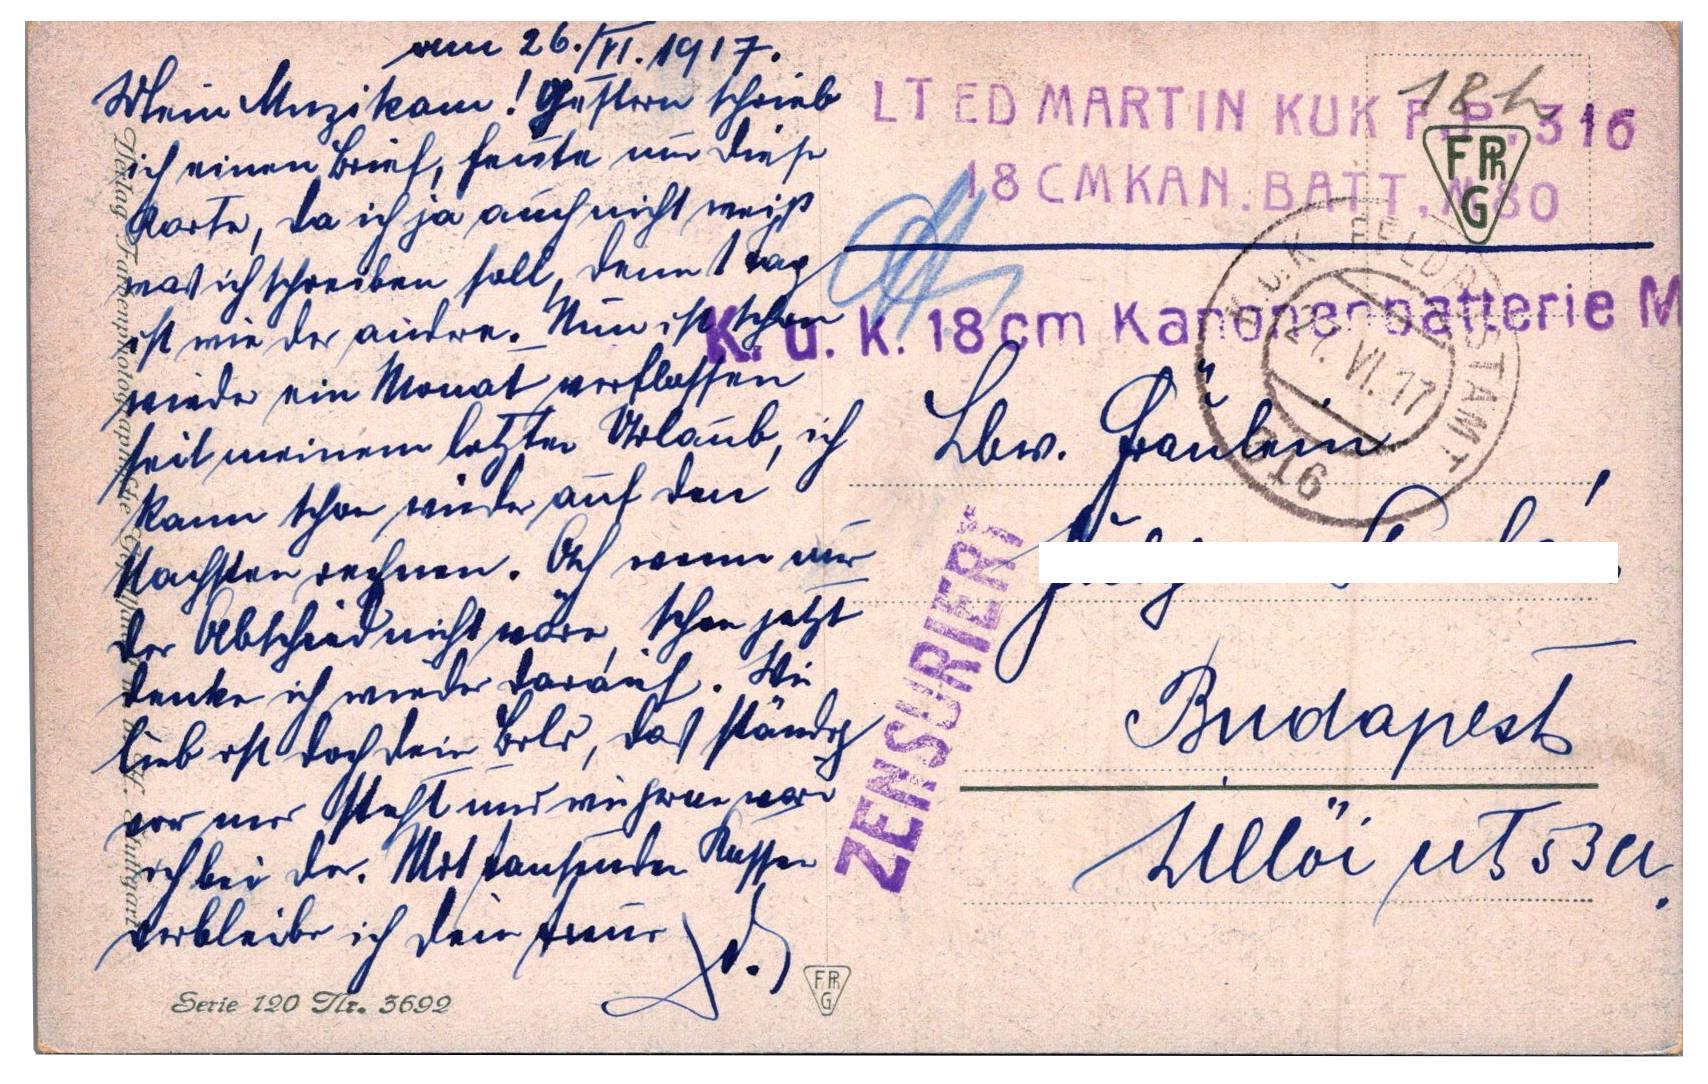 am 26./VI. 1917.
Mein Muzikam! Gestern schrieb
ich einen Brief, heute nur diese
Karte, da ich ja auch nicht weiß
was ich schreiben soll, denn 1 tag
ist wie der andre. Nun ist schon
wieder ein Monat verflossen
seit meinem letzten Urlaub, ich
kann schon wieder auf den
Nächsten rechnen. Ach wenn nur
der Abschied nicht wäre, schon jetzt
denke ich wieder darauf. Wie
lieb ist doch dein Bild, das ständig
vor mir steht und wie gerne wäre
ich bei dir. Mit tausenden Küssen
verbleibe ich Dein treuer
Serie 120 Nr. 3692
FPhG
LT ED MARTIN KUK F.P. 316
18 CM KAN. BATT. M 80
18h
FPhG
K. u. k. 18 cm Kanonenbatterie M
K.U.K. FELDPOSTAMT
27. VI. 17
316
ZENSURIERT
Fräulein
Budapest
Üllöi ut 53 a.